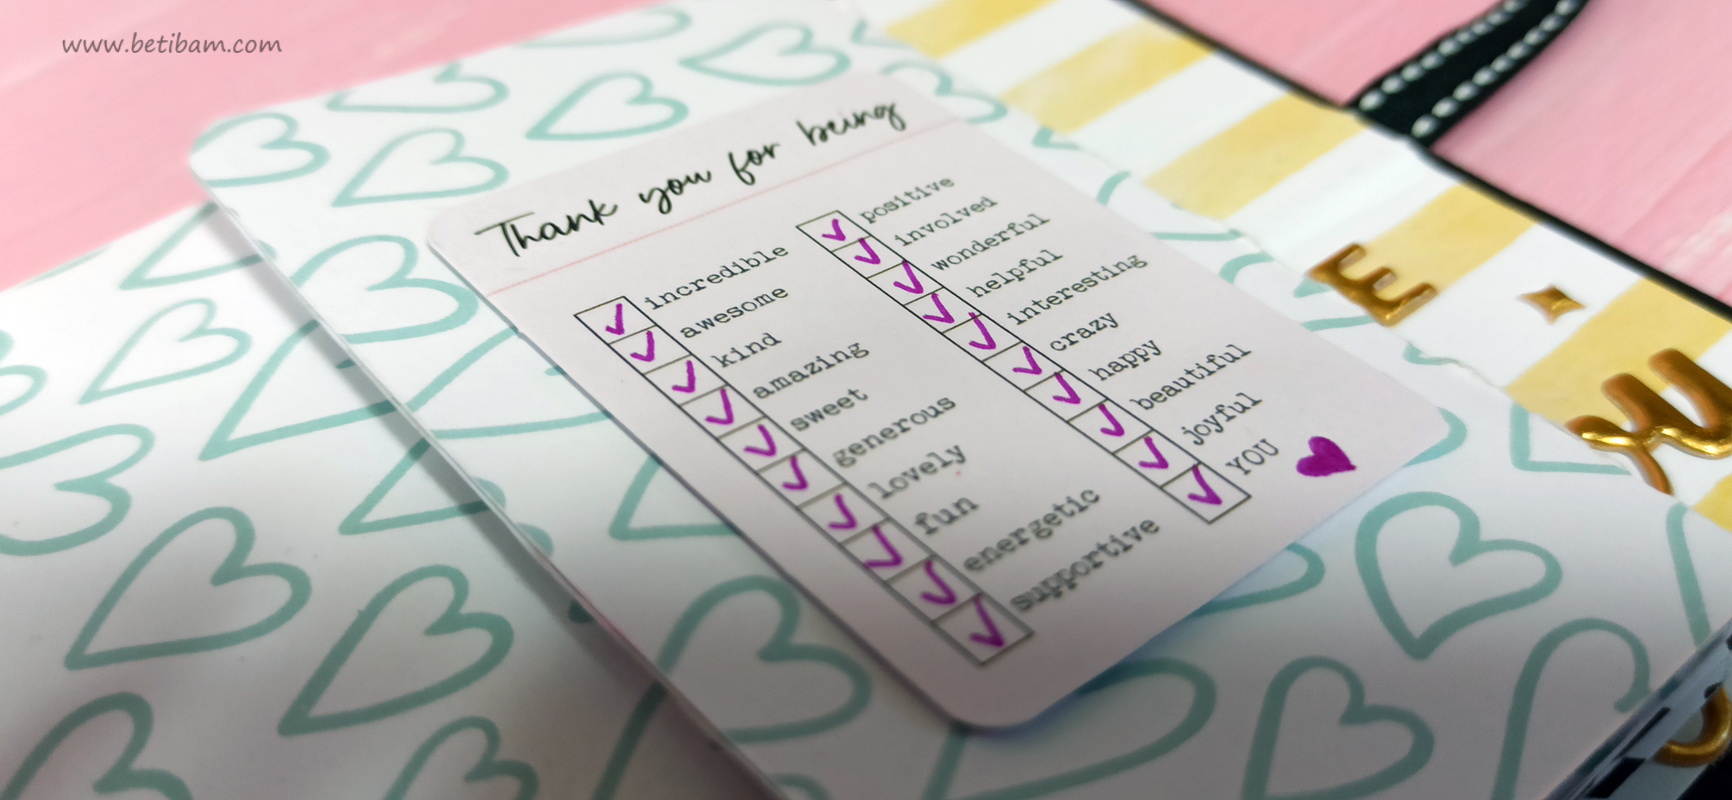 www.betibam.com
Thank you for being
incredible
awesome
kind
amazing
sweet
generous
lovely
fun
energetic
supportive
positive
involved
wonderful
helpful
interesting
crazy
happy
beautiful
joyful
YOU
E